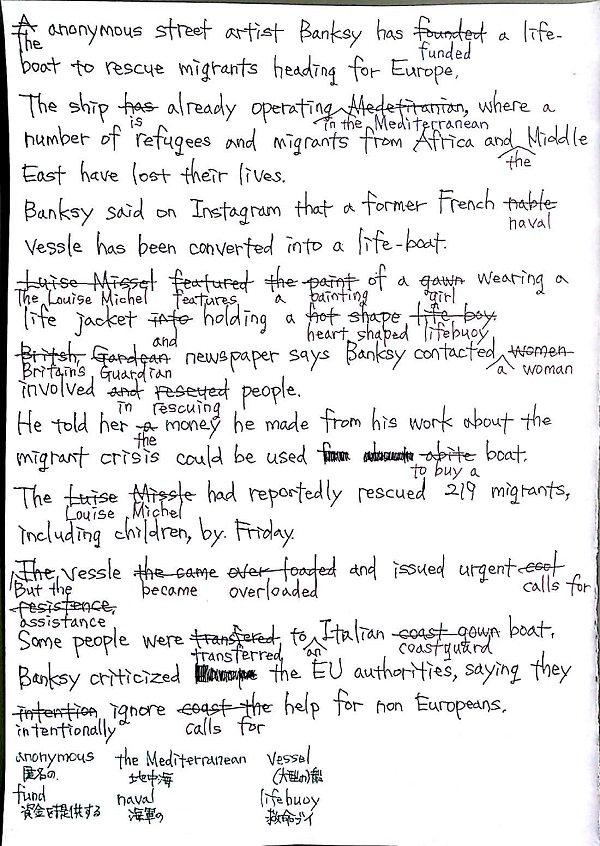 A anonymous street artist Banksy has founded a life-
The funded
boat to rescue migrants heading for Europe.
The ship has already operating Medetiranian, where a
is in the Mediterranean
number of refugees and migrants from Africa and Middle
the
East have lost their lives.
Banksy said on Instagram that a former French nable
naval
Vessle has been converted into a life-boat.
Luise Missel featured the paint of a gawn wearing a
The Louise Michel features a painting girl
life jacket into holding a hot shape life boy.
and heart shaped lifebuoy
Britsh, Gardean newspaper says Banksy contacted women
Britains Guardian a woman
involved and rescued people.
in rescuing
He told her a money he made from his work about the
the
migrant crisis could be used abite boat.
to buy a
The Luise Missle had reportedly rescued 219 migrants,
Louise Michel
including children, by. Friday.
The vessle the came over loaded and issued urgent cost
But the became overloaded calls for
resistence,
assistance
Some people were transfered to Italian coast gown boat.
transferred an coastguard
Banksy criticized the EU authorities, saying they
intention ignore coast the help for non Europeans.
intentionally calls for
anonymous the Mediterranean Vessel
匿名の 地中海 (大型の)船
fund naval lifebuoy
資金を提供する 海軍の 救命ブイ